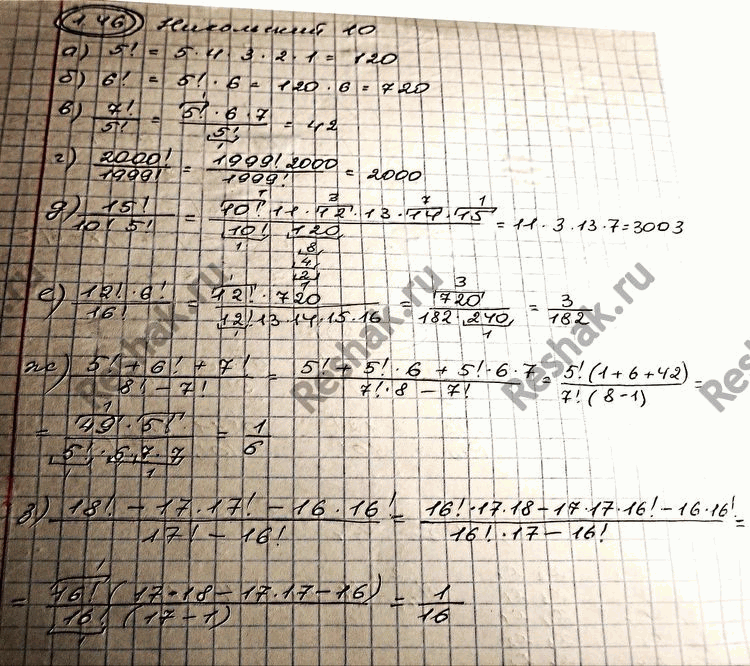 1.46 Никольский 10
а) 5! = 5·4·3·2·1 = 120
б) 6! = 5!·6 = 120·6 = 720
в) 7!/5! = 5!·6·7/5! = 42
г) 2000!/1999! = 1999!·2000/1999! = 2000
д) 15!/10!·5! = 10!·11·12·13·14·15/10!·120 = 11·3·13·7 = 3003
е) 12!·6!/16! = 12!·720/12!·13·14·15·16 = 720/182·240 = 3/182
ж) 5!+6!+7!/8!-7! = 5!+5!·6+5!·6·7/7!·8-7! = 5!(1+6+42)/7!(8-1) =
= 49·5!/5!·6·7·7 = 1/6
з) 18!-17·17!-16·16!/17!-16! = 16!·17·18-17·17·16!-16·16!/16!·17-16! =
= 16!(17·18-17·17-16)/16!(17-1) = 1/16
Reshak.ru
Reshak.ru
Reshak.ru
Reshak.ru
Reshak.ru
Reshak.ru